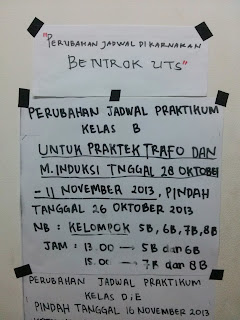 "PERUBAHAN JADWAL DIKARNAKAN
BENTROK UTS"
PERUBAHAN JADWAL PRAKTIKUM
KELAS B
UNTUK PRAKTEK TRAFO DAN
M.INDUKSI TNGGAL 28 OKTOBER
- 11 NOVEMBER 2013, PINDAH
TANGGAL 26 OKTOBER 2013
NB : KELOMPOK 5B, 6B, 7B, 8B
JAM : 13.00 → 5B dan 6B
15.00 → 7B dan 8B
PERUBAHAN JADWAL PRAKTIKUM
KELAS D,E
PINDAH TANGGAL 16 NOVEMBER 2013